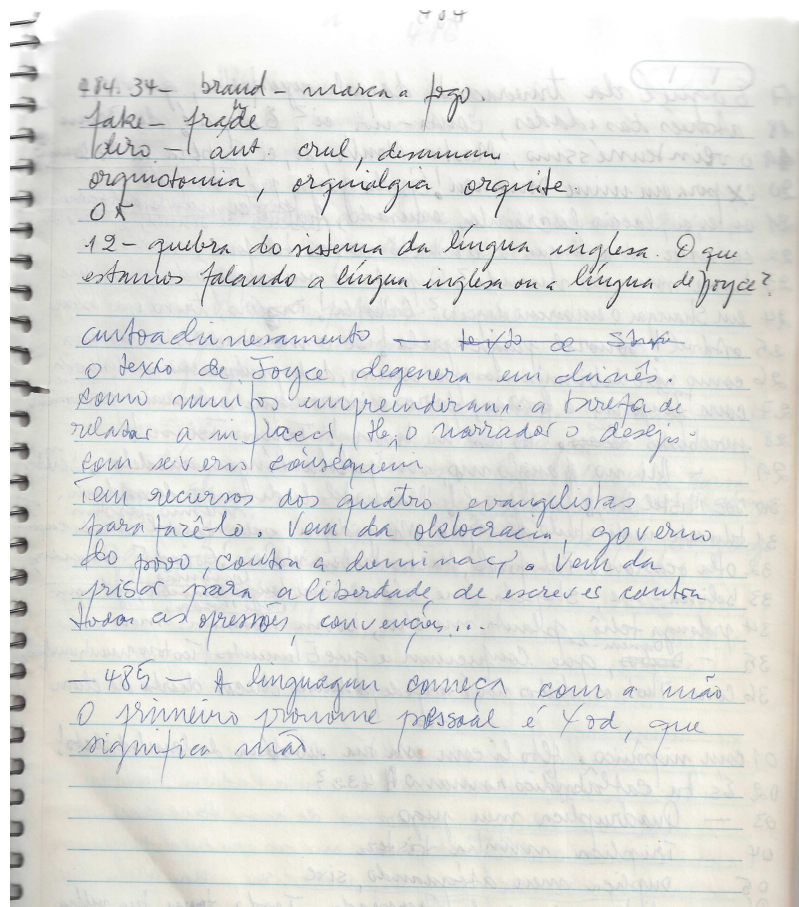 484.34 – brand – marca a fogo.
fake – frade
diro – ânt. cruel, desumano
orquiotomia, orquialgia, orquite.
OK
12 – quebra do sistema da língua inglesa. O que
estamos falando a língua inglesa ou a língua de Joyce?
texto de
O texto de Joyce degenera em chinês.
Como muitos empreenderam a tarefa de
relatar a o narrador o desejo
com
Tem recursos dos quatro evangelistas
para fazê-lo. Vem da oclocracia, governo
do povo, contra a dominaç. Vem da
prisão para a liberdade de escrever contra
todas as opressões, convenções...
– 485 – A linguagem começa com a mão
O primeiro pronome pessoal é Yod, que
significa mão.